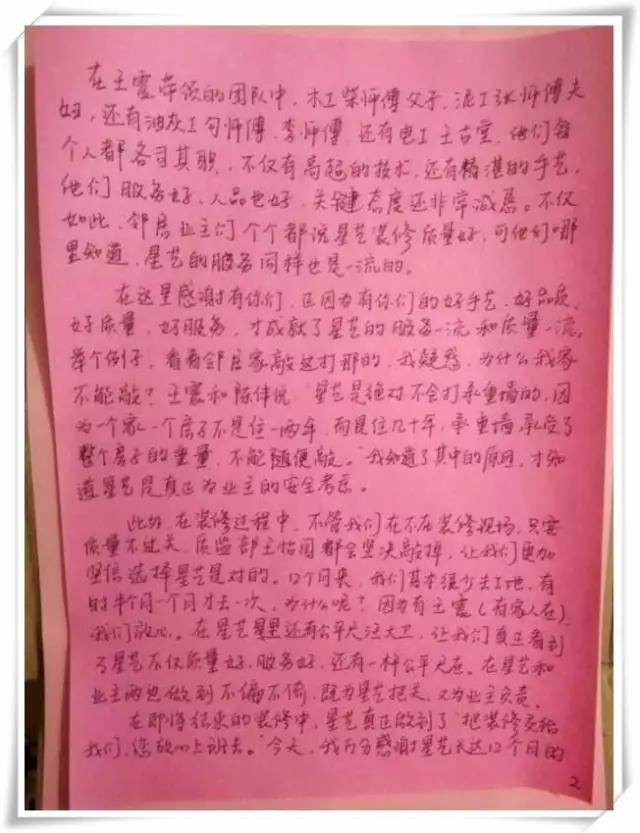 在王震带领的团队中，木工柴师傅父子，泥工张师傅夫
妇，还有油灰工句师傅，李师傅，还有电工王古堂，他们每
个人都各司其职，不仅有高超的技术，还有精湛的手艺，
他们服务好，人品也好，关键态度还非常诚恳。不仅
如此，邻居业主们个个都说星艺装修质量好，可他们哪
里知道，星艺的服务同样也是一流的。
在这里感谢有你们，正因为有你们的好手艺，好品质，
好质量，好服务，才成就了星艺的服务一流和质量一流，
举个例子，看看邻居家敲这打那的，我疑惑，为什么我家
不能敲？王震和陈伟说“星艺是绝对不会打承重墙的，因
为一个家一个房子不是住一两年，而是住几十年，承重墙承受了
整个房子的重量，不能随便敲。”我知道了其中的原因，才知
道星艺是真正为业主的安全考虑。
此外，在装修过程中，不管我们在不在装修现场，只要
质量不过关，质监部王怡园都会坚决敲掉，让我们更加
坚信选择星艺是对的。12个月来，我们基本很少去工地，有
时半个月一个月才去一次，为什么呢？因为有王震（有家人在），
我们放心。在星艺里还有公平尺汪大卫，让我们真正看到
了星艺不仅质量好，服务好，还有一杆公平尺在。在星艺和
业主两边做到不偏不倚，既为星艺把关，又为业主负责。
在即将结束的装修中，星艺真正做到了“把装修交给
我们，您放心上班去。”今天，我万分感谢星艺长达12个月的
2